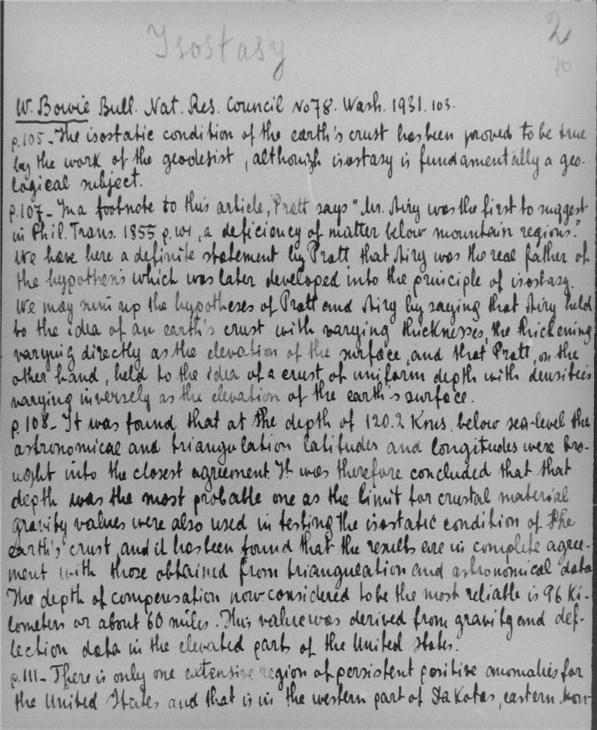 Isostasy
2
70
W. Bowie Bull. Nat. Res. Council No 78. Wash. 1931. 103.
p.105 - The isostatic condition of the earth's crust has been proved to be true
by the work of the geodesist, although isostasy is fundamentally a geo-
logical subject.
p.107 - In a footnote to this article, Pratt says "Mr. Airy was the first to suggest
in Phil. Trans. 1855 p. 101, a deficiency of matter below mountain regions."
We have here a definite statement by Pratt that Airy was the real father of
the hypothesis which was later developed into the principle of isostasy.
We may sum up the hypotheses of Pratt and Airy by saying that Airy held
to the idea of an earth's crust with varying thicknesses, the thickening
varying directly as the elevation of the surface, and that Pratt, on the
other hand, held to the idea of a crust of uniform depth with densities
varying inversely as the elevation of the earth's surface.
p.108 - It was found that at the depth of 120.2 Kms. below sea-level the
astronomical and triangulation latitudes and longitudes were bro-
ught into the closest agreement. It was therefore concluded that that
depth was the most probable one as the limit for crustal material
gravity values were also used in testing the isostatic condition of the
earth's crust, and it has been found that the results are in complete agree-
ment with those obtained from triangulation and astronomical data
The depth of compensation now considered to be the most reliable is 96 Ki-
lometers or about 60 miles. This value was derived from gravity and def-
lection data in the elevated parts of the United States.
p.111 - There is only one extensive region of persistent positive anomalies for
the United States and that is in the western part of Dakotas, eastern Mon-